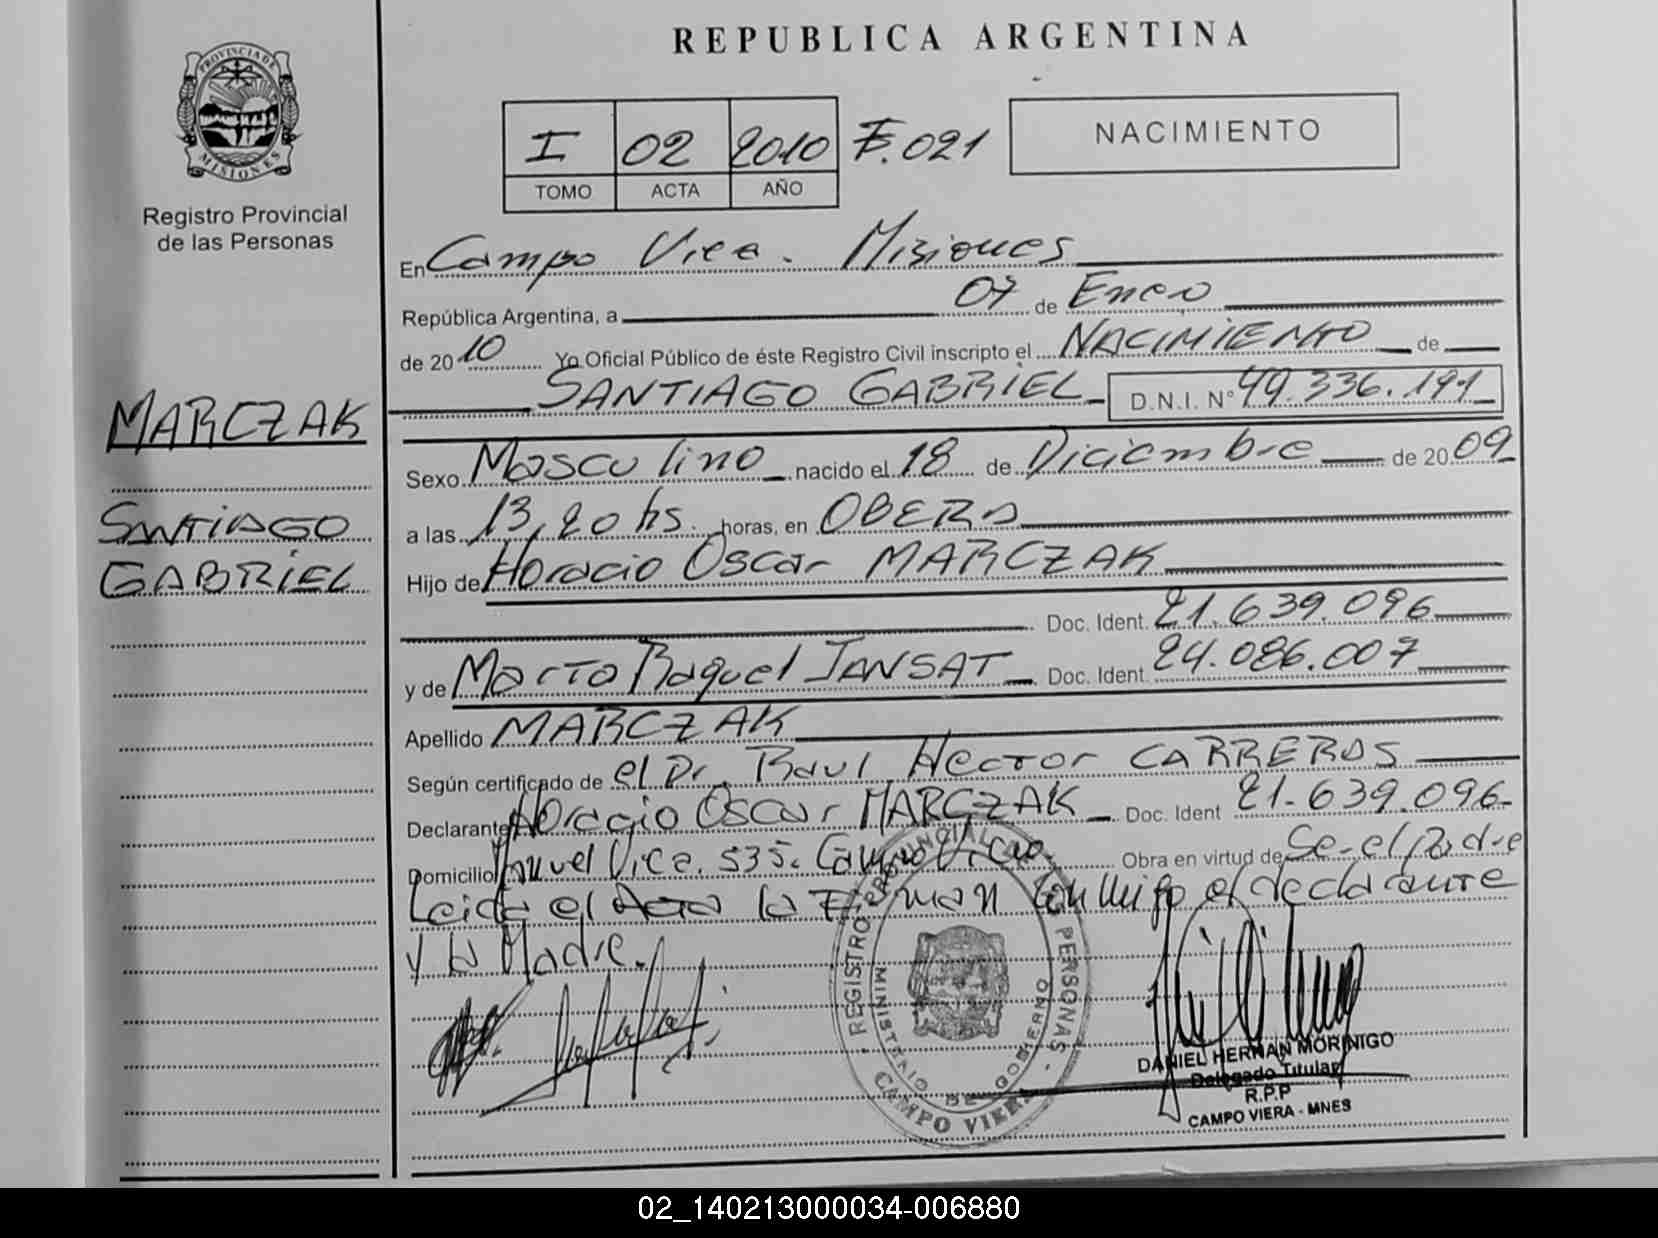 REPUBLICA ARGENTINA
PROVINCIA DE
MISIONES
Registro Provincial
de las Personas
I 02 2010 F.021
TOMO ACTA AÑO
NACIMIENTO
En Campo Viera. Misiones
República Argentina, a 07 de Enero
de 2010 Yo Oficial Público de éste Registro Civil inscripto el NACIMIENTO de
SANTIAGO GABRIEL D.N.I. N° 49.336.191
MARCZAK
SANTIAGO
GABRIEL
Sexo Masculino nacido el 18 de Diciembre de 2009
a las 13,20 hs. horas, en OBERA
Hijo de Horacio Oscar MARCZAK
Doc. Ident. 21.639.096
y de Marta Raquel JANSAT Doc. Ident. 24.086.007
Apellido MARCZAK
Según certificado de el Dr. Raul Hector CARREROS
Declarante Horacio Oscar MARCZAK Doc. Ident 21.639.096
Domicilio Manuel Vica. 535. Campo Viera Obra en virtud de Se-el padre
Leida el Acta la Firman conmigo el declarante
y la Madre.
REGISTRO PROVINCIAL DE LAS PERSONAS
MINISTERIO DE GOBIERNO
CAMPO VIERA
DANIEL HERNAN MORINIGO
Delegado Titular
R.P.P
CAMPO VIERA - MNES
02_140213000034-006880